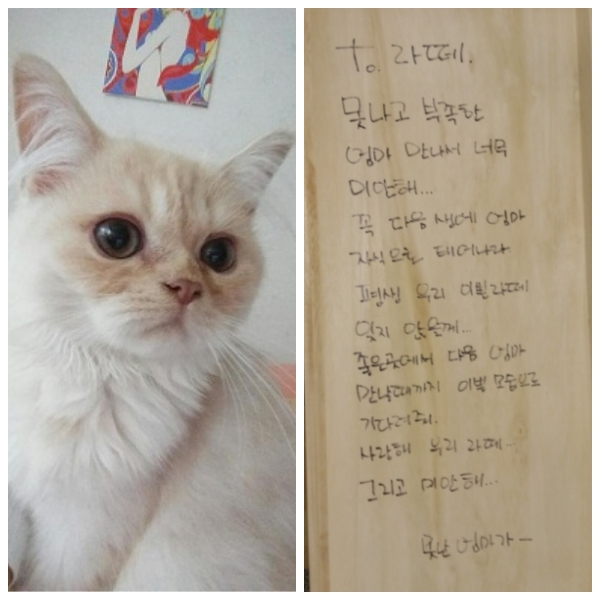 To. 라떼.
못나고 부족한
엄마 만나서 너무
미안해...
꼭 다음 생에 엄마
자식으로 태어나라
평생 우리 이쁜라떼
잊지 않을께...
좋은곳에서 다음 엄마
만날때까지 이쁜 모습으로
기다려줘.
사랑해 우리 라떼..
그리고 미안해...
못난 엄마가 -